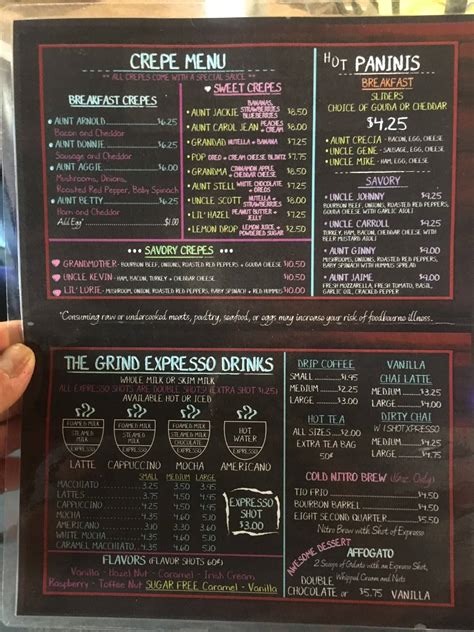 CREPE MENU
** ALL CREPES COME WITH A SPECIAL SAUCE **
BREAKFAST CREPES
AUNT ARNOLD $6.25
Bacon and Cheddar
AUNT DONNIE $6.25
Sausage and Cheddar
AUNT AGGIE $6.25
Mushrooms, Onions,
Roasted Red Pepper, Baby Spinach
AUNT BETTY $6.25
Ham and Cheddar
Add Egg $1.00
SWEET CREPES
AUNT JACKIE BANANAS, STRAWBERRIES BLUEBERRIES $8.50
AUNT CAROL JEAN PEACHES & CREAM $8.00
GRANDAD NUTELLA + BANANA
POP DRIED + CREAM CHEESE BLINTZ
GRANDMA CINNAMON APPLE, CHEDDAR CHEESE
AUNT STELL WHITE CHOCOLATE + OREOS
UNCLE SCOTT NUTELLA + STRAWBERRIES
LIL' HAZEL PEANUT BUTTER + JELLY
LEMON DROP LEMON JUICE + POWDERED SUGAR
SAVORY CREPES
GRANDMOTHER - BOURBON BEEF, ONIONS, ROASTED RED PEPPERS + GOUDA CHEESE $10.50
UNCLE KEVIN - HAM, BACON, TURKEY + CHEDDAR CHEESE $10.50
LIL' LORIE - MUSHROOMS, ROASTED RED PEPPERS, BABY SPINACH + RED HUMMUS $10.50
HOT PANINIS
BREAKFAST
SLIDERS
CHOICE OF GOUDA OR CHEDDAR
$4.25
AUNT CRECIA - BACON, EGG, CHEESE
UNCLE GENE - SAUSAGE, EGG, CHEESE
UNCLE MIKE - HAM, EGG, CHEESE
SAVORY
UNCLE JOHNNY $9.25
BOURBON BEEF, ONIONS, ROASTED RED PEPPERS,
GOUDA CHEESE WITH GARLIC AIOLI
UNCLE CARROLL $9.25
TURKEY, HAM, BACON, CHEDDAR CHEESE WITH
BEER MUSTARD AIOLI
AUNT GINNY $9.25
MUSHROOMS, ONIONS, ROASTED RED PEPPERS,
BABY SPINACH WITH HUMMUS SPREAD
AUNT JAIME $9.25
FRESH MOZZARELLA, FRESH TOMATO, BASIL,
GARLIC OIL, CRACKED PEPPER
*Consuming raw or undercooked meats, poultry, seafood, or eggs may increase your risk of foodbourne illness.
THE GRIND EXPRESSO DRINKS
WHOLE MILK OR SKIM MILK
ALL EXPRESSO SHOTS ARE DOUBLE SHOTS! (EXTRA SHOT $1.25)
AVAILABLE HOT OR ICED
FOAMED MILK
STEAMED MILK
EXPRESSO
FOAMED MILK
STEAMED MILK
EXPRESSO
STEAMED MILK
EXPRESSO
HOT WATER
EXPRESSO
LATTE CAPPUCCINO MOCHA AMERICANO
SMALL MEDIUM LARGE
MACCHIATO 3.25 3.50 3.75
LATTES 3.75 4.50 4.95
CAPPUCCINO 4.25 4.50 4.95
MOCHA 4.25 4.50 4.95
AMERICANO 3.10 3.50 3.75
WHITE MOCHA 4.25 4.50 4.95
CARAMEL MACCHIATO 4.25 4.50 4.95
EXPRESSO
SHOT
$3.00
FLAVORS (FLAVOR SHOTS 60¢)
Vanilla - Hazel Nut - Caramel - Irish Cream
Raspberry - Toffee Nut - SUGAR FREE Caramel - Vanilla
DRIP COFFEE
SMALL $1.95
MEDIUM $2.25
LARGE $2.50
HOT TEA
ALL SIZES $2.00
EXTRA TEA BAG
50¢
VANILLA
CHAI LATTE
MEDIUM $3.25
LARGE $4.00
DIRTY CHAI
W 1 SHOT EXPRESSO
MEDIUM $4.25
LARGE $5.25
COLD NITRO BREW (16oz. Only)
TIO FRIO $4.50
BOURBON BARREL $4.50
EIGHT SECOND QUARTER $5.50
Nitro Brew with Shot of Expresso
AWESOME DESSERT
AFFOGATO
2 Scoops of Gelato with an Expresso Shot,
Whipped Cream and Nuts
DOUBLE CHOCOLATE or $5.75 VANILLA